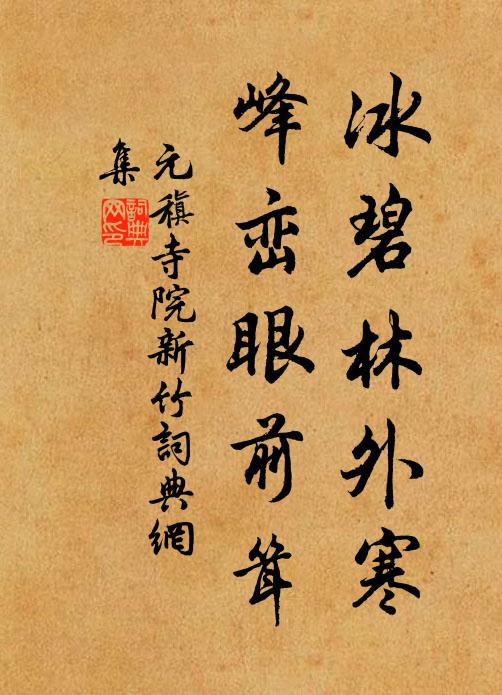 冰碧林外寒
峰峦眼前耸
元稹寺院新竹詞典網
集
詞典網印